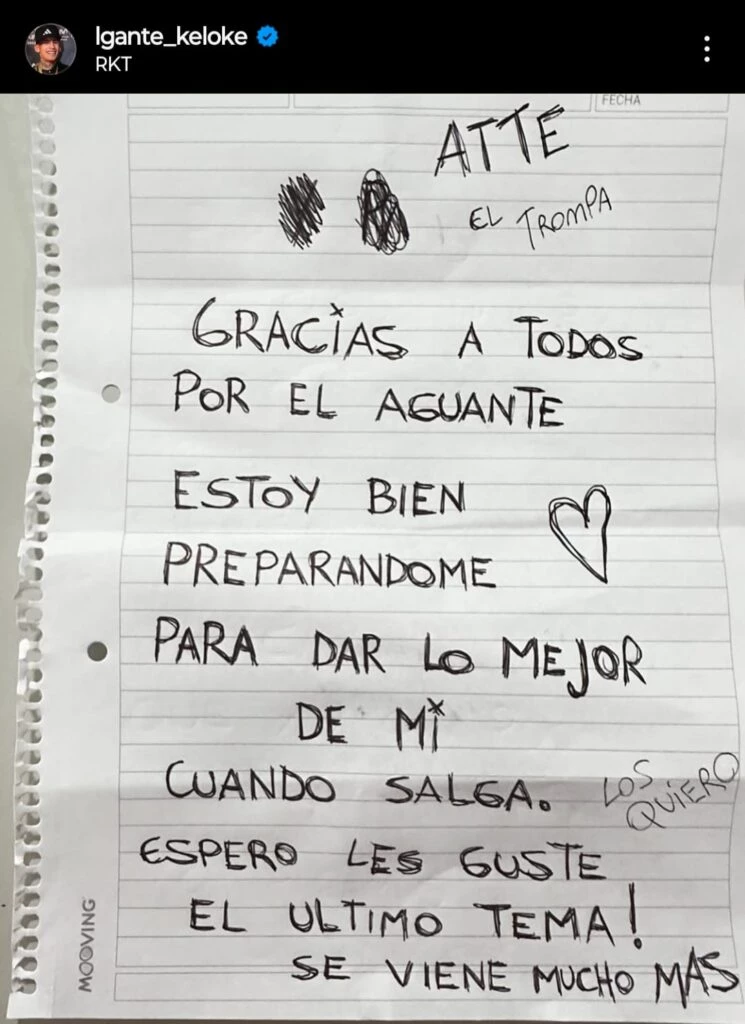 lgante_keloke
RKT
FECHA
ATTE
EL TROMPA
GRACIAS A TODOS
POR EL AGUANTE
ESTOY BIEN
PREPARANDOME
PARA DAR LO MEJOR
DE Mi
CUANDO SALGA.
LOS
QUIERO
ESPERO LES GUSTE
EL ULTIMO TEMA!
SE VIENE MUCHO MAS
MOOVING